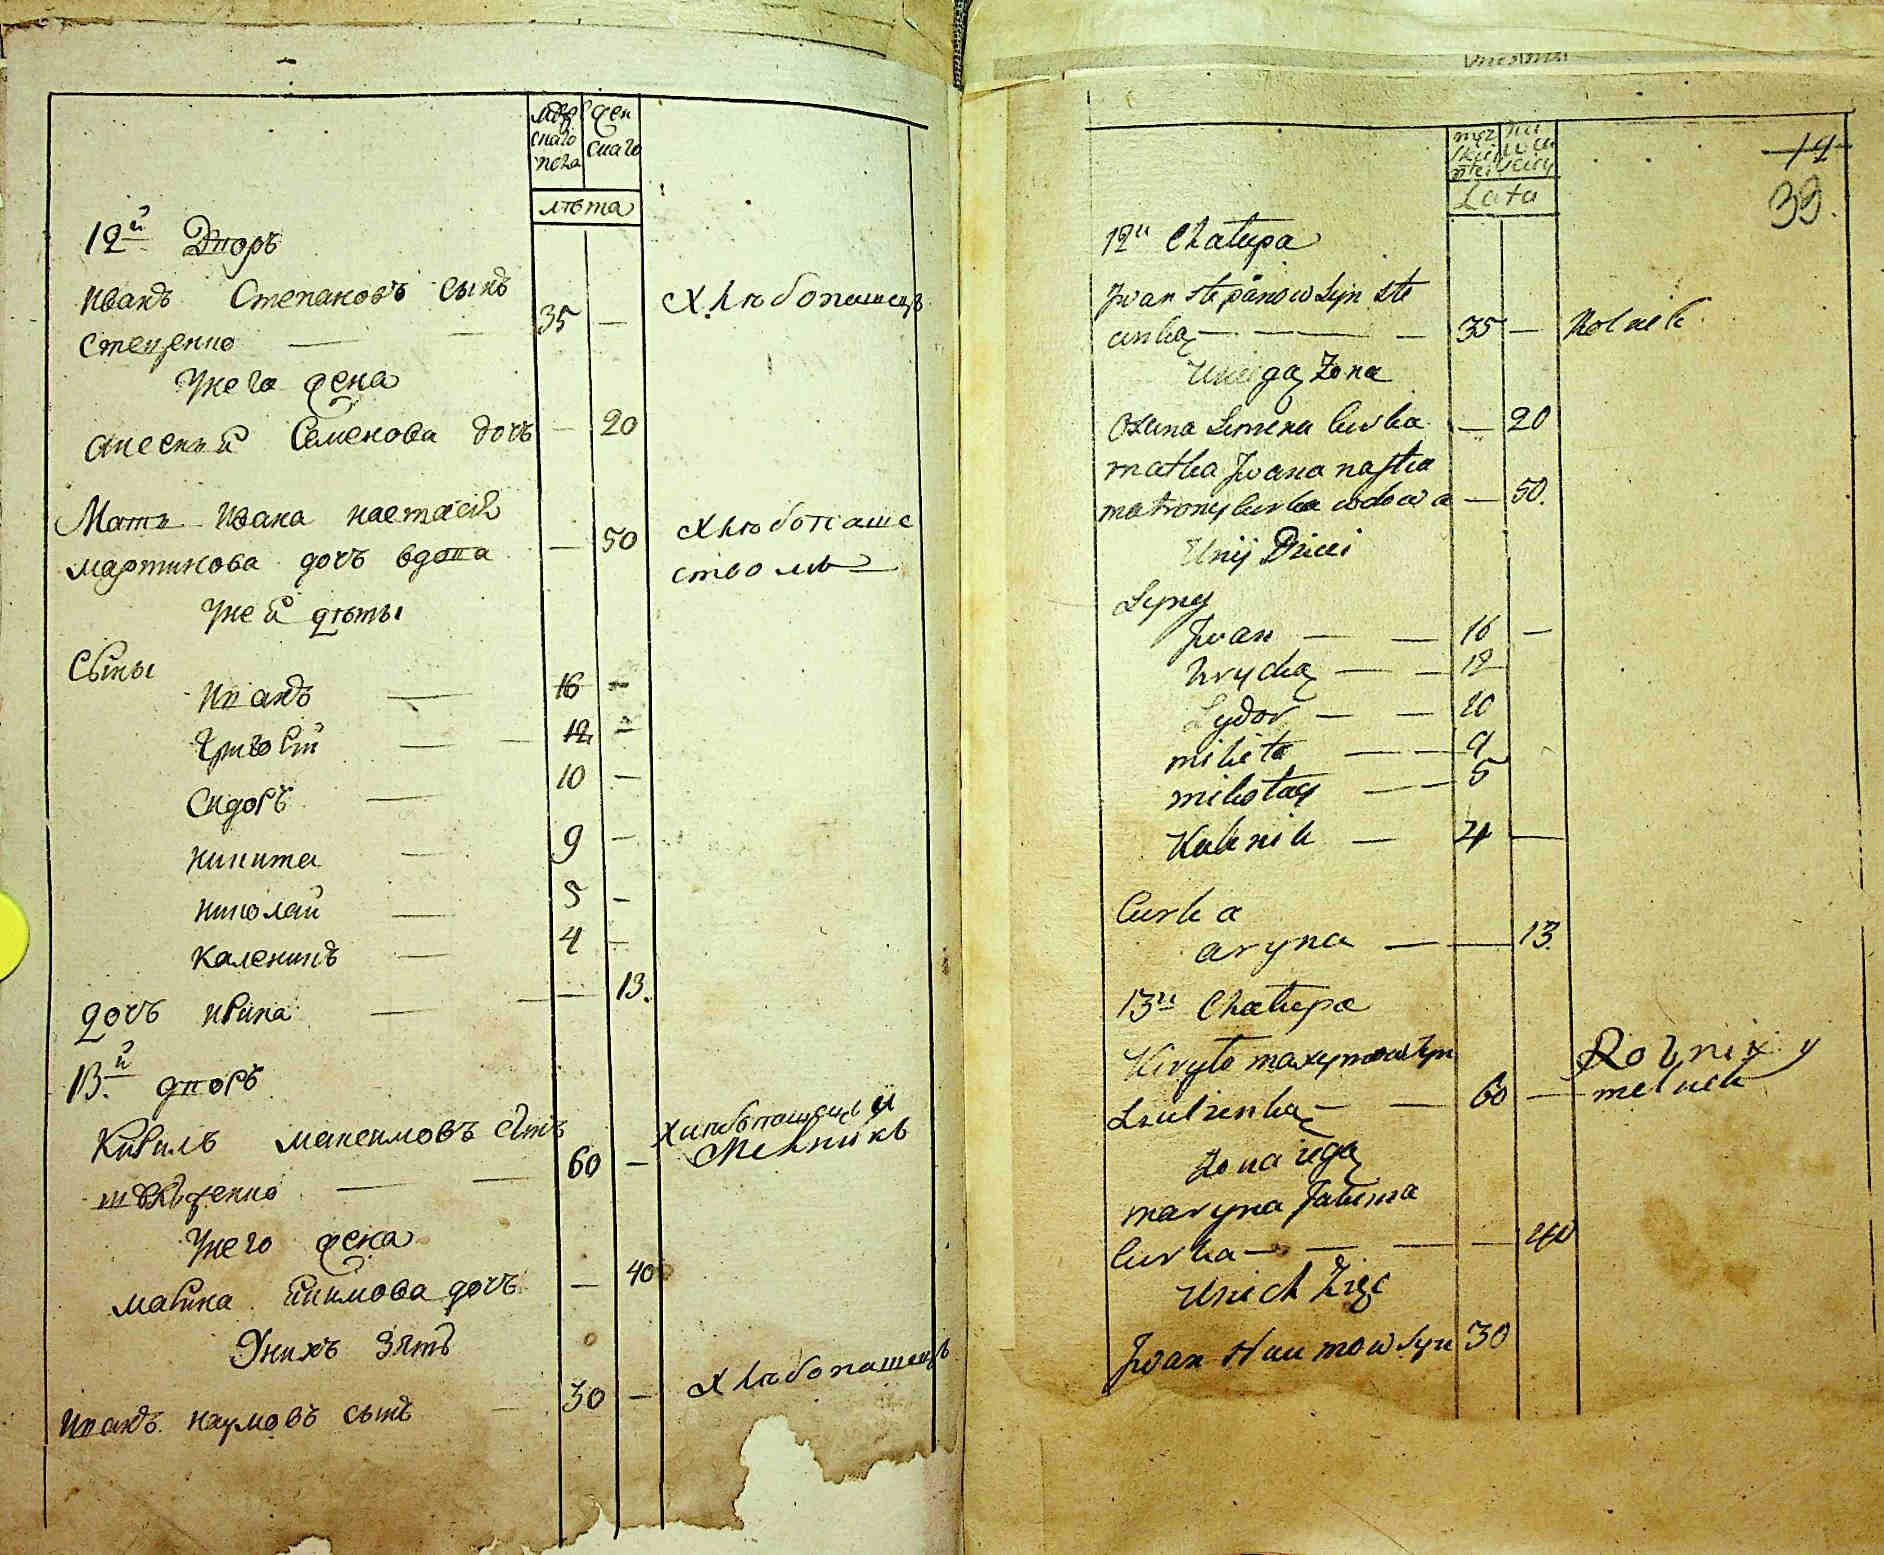 Мор Жен
скаго скаго
пола
лѣта
12й Дворъ
иванъ Степановъ сынъ
Стеценко — 35 — Хлѣбопашецъ
Унего жена
Семенова дочъ — 20
Мать ивана настасія
мартинова дочъ вдова — 50 Хлѣбопаше
ство мъ
Уней дѣты
Сыны
иванъ — 16 —
Григорій — 12 —
Сидоръ — 10 —
никита — 9 —
николай — 5 —
каленикъ — 4 —
дочъ ирина — — 13.
13.й дворъ
Кирилъ максимовъ сынъ Хлѣбопашецъ и
— 60 — Мелникъ
Унего жена
марина Якимова дочъ — 40
Унихъ Зять
иванъ наумовъ сынъ 30 — Хлѣбопашецъ
męz
Lata
14
39.
12ii Chałupa
Jwan stepanow Syn Ste
cenko — — 35 — Rolnik
Uniego Zona
Simena Curka — 20
matka Jwana nastia
matrony Curka wdowa — 50.
Unij Dzieci
Syny
Jwan — — 16 —
hrycko — — 12
Sydor — — 10
mikita — — 9
mikołay — — 5
Kalinik — 4 —
Curka
aryna — — 13.
13ii Chałupa
Kiryło maxymow Syn Rolnik y
— — 60 — melnik
Zona iego
maryna Jakima
Curka — — — — 40
Unich Zięć
Jwan Naumow Syn 30